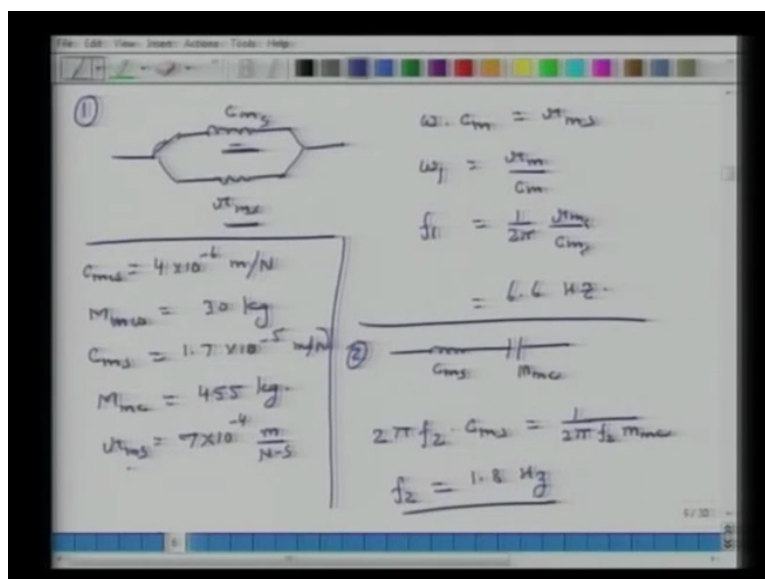 File Edit View Insert Actions Tools Help
①
Cms
rms
Cmt = 4 × 10⁻⁶ m/N
Mmw = 30 kg
Cms = 1.7 × 10⁻⁵ m/N
Mmc = 455 kg.
rms = 7×10⁻⁴ m/N-s
ω. Cm = rms
ω1 = rm/Cm
f1 = 1/2π rms/Cms
= 6.6 HZ.
②
Cms Mmc
2π f2 · Cms = 1/2π f2 mmc
f2 = 1.8 Hz
6/30
6